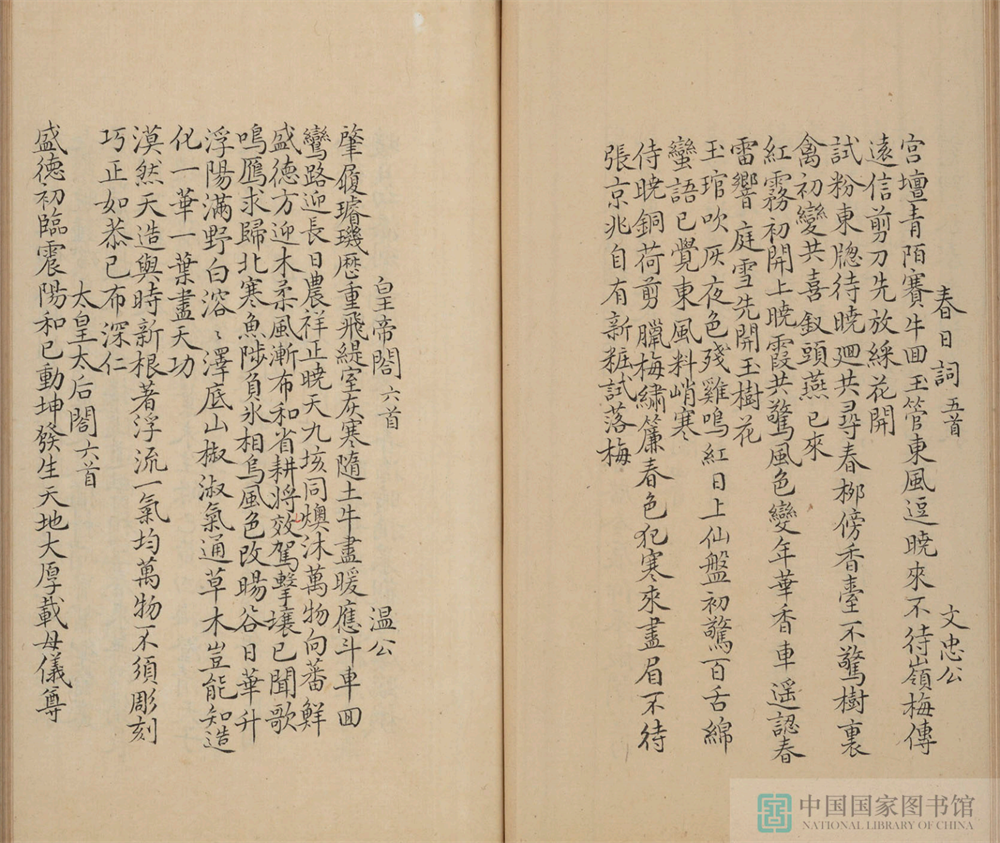 春日詞五首 文忠公
宮壇青陌賽牛囬玉管東風逗曉來不待嶺梅傳
遠信剪刀先放綵花開
試粉東牕待曉廻共尋春栁傍香臺不驚樹裏
禽初變共喜釵頭燕已來
紅霧初開上曉霞共驚風色變年華香車遥認春
雷響庭雪先開玉樹花
玉琯吹灰夜色殘雞鳴紅日上仙盤初驚百舌綿
蠻語已覺東風料峭寒
侍曉銅荷剪臘梅繡簾春色犯寒來畫眉不待
張京兆自有新粧試落梅
皇帝閤六首 温公
肇履璿璣厯重飛緹室灰寒隨土牛盡暖應斗車囬
鸞路迎長日農祥正曉天九垓同燠沐萬物向蕃鮮
盛德方迎木柔風漸布和省耕將效駕擊壤已聞歌
鳴鴈求歸北寒魚陟負氷相烏風色改暘谷日華升
浮陽滿野白溶〻澤底山椒淑氣通草木豈能知造
化一華一葉盡天功
漠然天造與時新根著浮流一氣均萬物不須彫刻
巧正如恭已布深仁
太皇太后閤六首
盛德初臨震陽和已動坤發生天地大厚載母儀尊
中国国家图书馆
NATIONAL LIBRARY OF CHINA